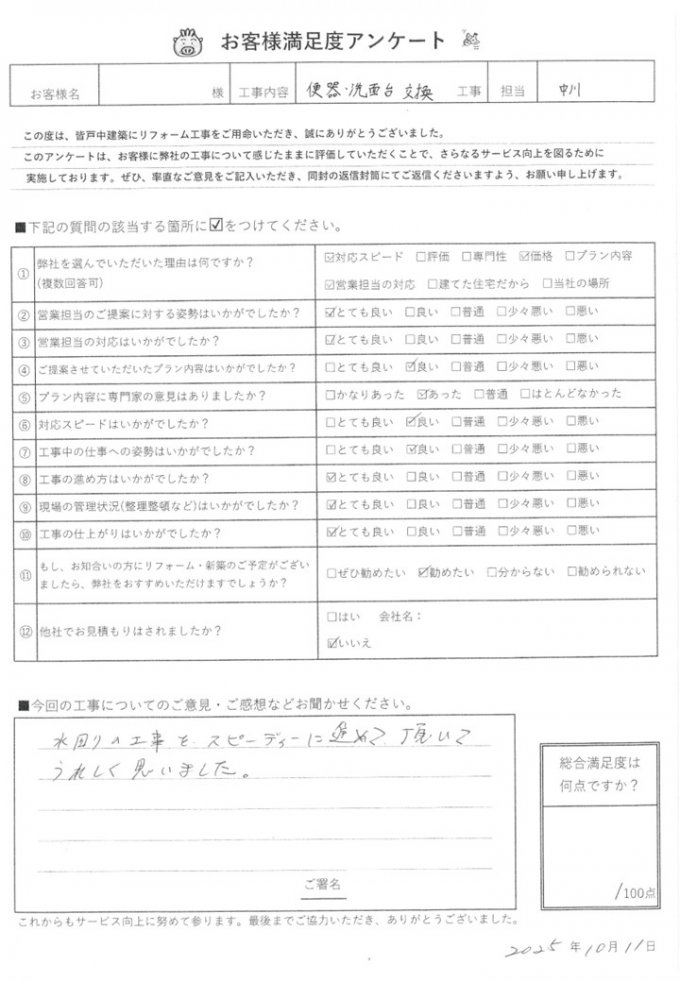 お客様満足度アンケート
お客様名 様 工事内容 便器・洗面台 交換 工事 担当 中川
この度は、皆戸中建築にリフォーム工事をご用命いただき、誠にありがとうございました。
このアンケートは、お客様に弊社の工事について感じたままに評価していただくことで、さらなるサービス向上を図るために
実施しております。ぜひ、率直なご意見をご記入いただき、同封の返信封筒にてご返信くださいますよう、お願い申し上げます。
■下記の質問の該当する箇所に☑をつけてください。
① 弊社を選んでいただいた理由は何ですか?
(複数回答可)
☑対応スピード □評価 □専門性 ☑価格 □プラン内容
☑営業担当の対応 □建てた住宅だから □当社の場所
② 営業担当のご提案に対する姿勢はいかがでしたか? ☑とても良い □良い □普通 □少々悪い □悪い
③ 営業担当の対応はいかがでしたか? ☑とても良い □良い □普通 □少々悪い □悪い
④ ご提案させていただいたプラン内容はいかがでしたか? □とても良い ☑良い □普通 □少々悪い □悪い
⑤ プラン内容に専門家の意見はありましたか? □かなりあった ☑あった □普通 □ほとんどなかった
⑥ 対応スピードはいかがでしたか? □とても良い ☑良い □普通 □少々悪い □悪い
⑦ 工事中の仕事への姿勢はいかがでしたか? □とても良い ☑良い □普通 □少々悪い □悪い
⑧ 工事の進め方はいかがでしたか? ☑とても良い □良い □普通 □少々悪い □悪い
⑨ 現場の管理状況(整理整頓など)はいかがでしたか? ☑とても良い □良い □普通 □少々悪い □悪い
⑩ 工事の仕上がりはいかがでしたか? ☑とても良い □良い □普通 □少々悪い □悪い
⑪ もし、お知合いの方にリフォーム・新築のご予定がござい
ましたら、弊社をおすすめいただけますでしょうか?
□ぜひ勧めたい ☑勧めたい □分からない □勧められない
⑫ 他社でお見積もりはされましたか?
□はい 会社名:
☑いいえ
■今回の工事についてのご意見・ご感想などお聞かせください。
水回りの工事を、スピーディーに進めて頂いて
うれしく思いました。
ご署名
総合満足度は
何点ですか?
/100点
これからもサービス向上に努めて参ります。最後までご協力いただき、ありがとうございました。
2025年10月11日